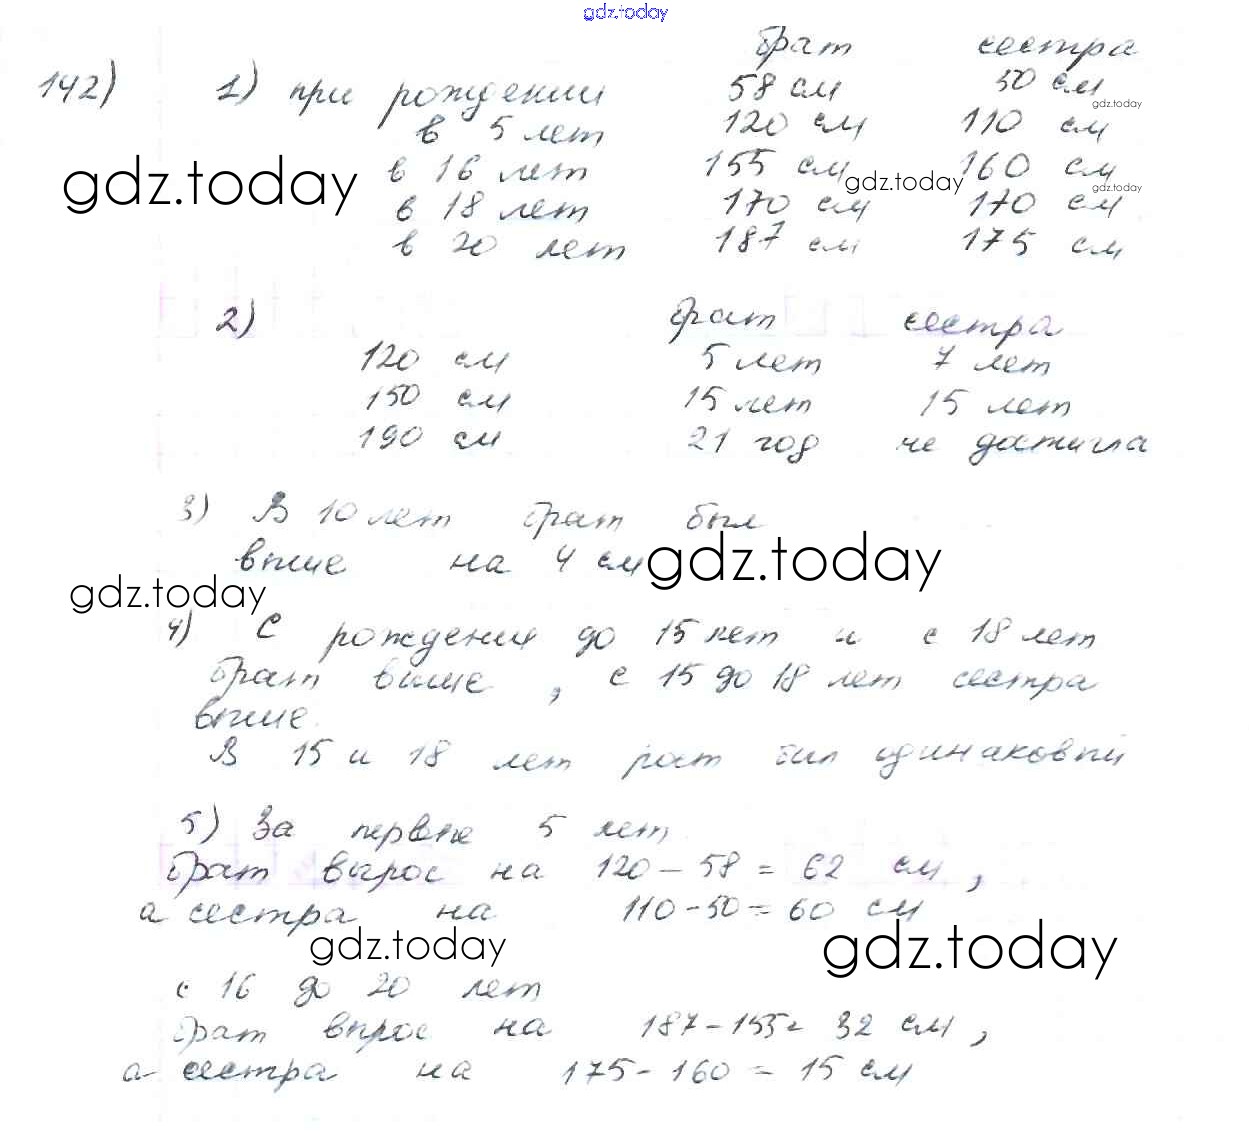 gdz.today
брат сестра
142) 1) при рождении 58 см 50 см
gdz.today
в 5 лет 120 см 110 см
в 16 лет 155 см 160 см
gdz.today gdz.today gdz.today
в 18 лет 170 см 170 см
в 20 лет 187 см 175 см
2) брат сестра
120 см 5 лет 7 лет
150 см 15 лет 15 лет
190 см 21 год не достигла
3) В 10 лет брат был
выше на 4 см
gdz.today
gdz.today
4) С рождения до 15 лет и с 18 лет
брат выше, с 15 до 18 лет сестра
выше.
В 15 и 18 лет рост был одинаковый
5) За первые 5 лет
брат вырос на 120 - 58 = 62 см,
а сестра на 110 - 50 = 60 см
gdz.today gdz.today
с 16 до 20 лет
брат вырос на 187 - 155 = 32 см,
а сестра на 175 - 160 = 15 см